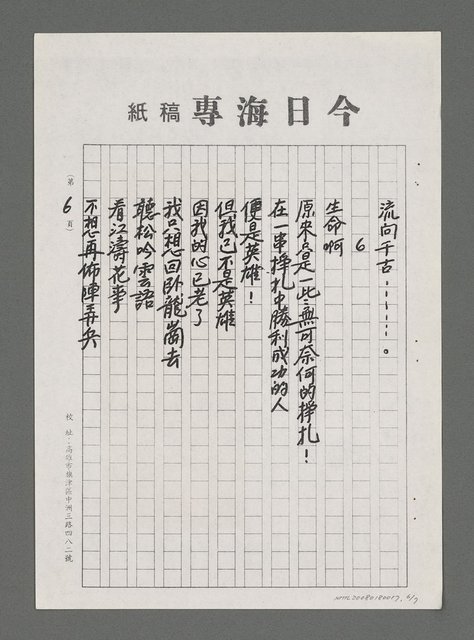 今日海專稿紙
流向千古………。
6
生命啊
原來盡是一些無可奈何的掙扎！
在一串掙扎中勝利成功的人
便是英雄！
但我已不是英雄
因我的心已老了
我只想回臥龍崗去
聽松吟雲語
看江濤花事
不想再佈陣弄兵
（第 6 頁）
校址：高雄市旗津區中洲三路四八二號
NMTL20080180017, 6/7